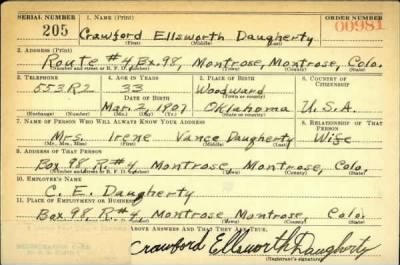 SERIAL NUMBER 1. NAME (Print) ORDER NUMBER
205 Crawford Ellsworth Daugherty 00981
(First) (Middle) (Last)
2. ADDRESS (Print)
Route #4 Bx. 98, Montrose, Montrose, Colo.
(Number and street or R. F. D. number) (Town) (County) (State)
3. TELEPHONE 4. AGE IN YEARS 5. PLACE OF BIRTH 6. COUNTRY OF CITIZENSHIP
553R2 33 Woodward
DATE OF BIRTH (Town or county)
Mar. 2, 1907 Oklahoma U.S.A.
(Exchange) (Number) (Mo.) (Day) (Yr.) (State or country)
7. NAME OF PERSON WHO WILL ALWAYS KNOW YOUR ADDRESS 8. RELATIONSHIP OF THAT PERSON
Mrs. Irene Vance Daugherty Wife
(Mr., Mrs., Miss) (First) (Middle) (Last)
9. ADDRESS OF THAT PERSON
Box 98, R. #4 Montrose Montrose, Colo.
(Number and street or R. F. D. number) (Town) (County) (State)
10. EMPLOYER'S NAME
C. E. Daugherty
11. PLACE OF EMPLOYMENT OR BUSINESS
Box 98, R. #4, Montrose Montrose, Colo.
(Number and street or R. F. D. number) (Town) (County) (State)
ABOVE ANSWERS AND THAT THEY ARE TRUE.
REGISTRATION CARD
Crawford Ellsworth Daugherty
(Registrant's signature)